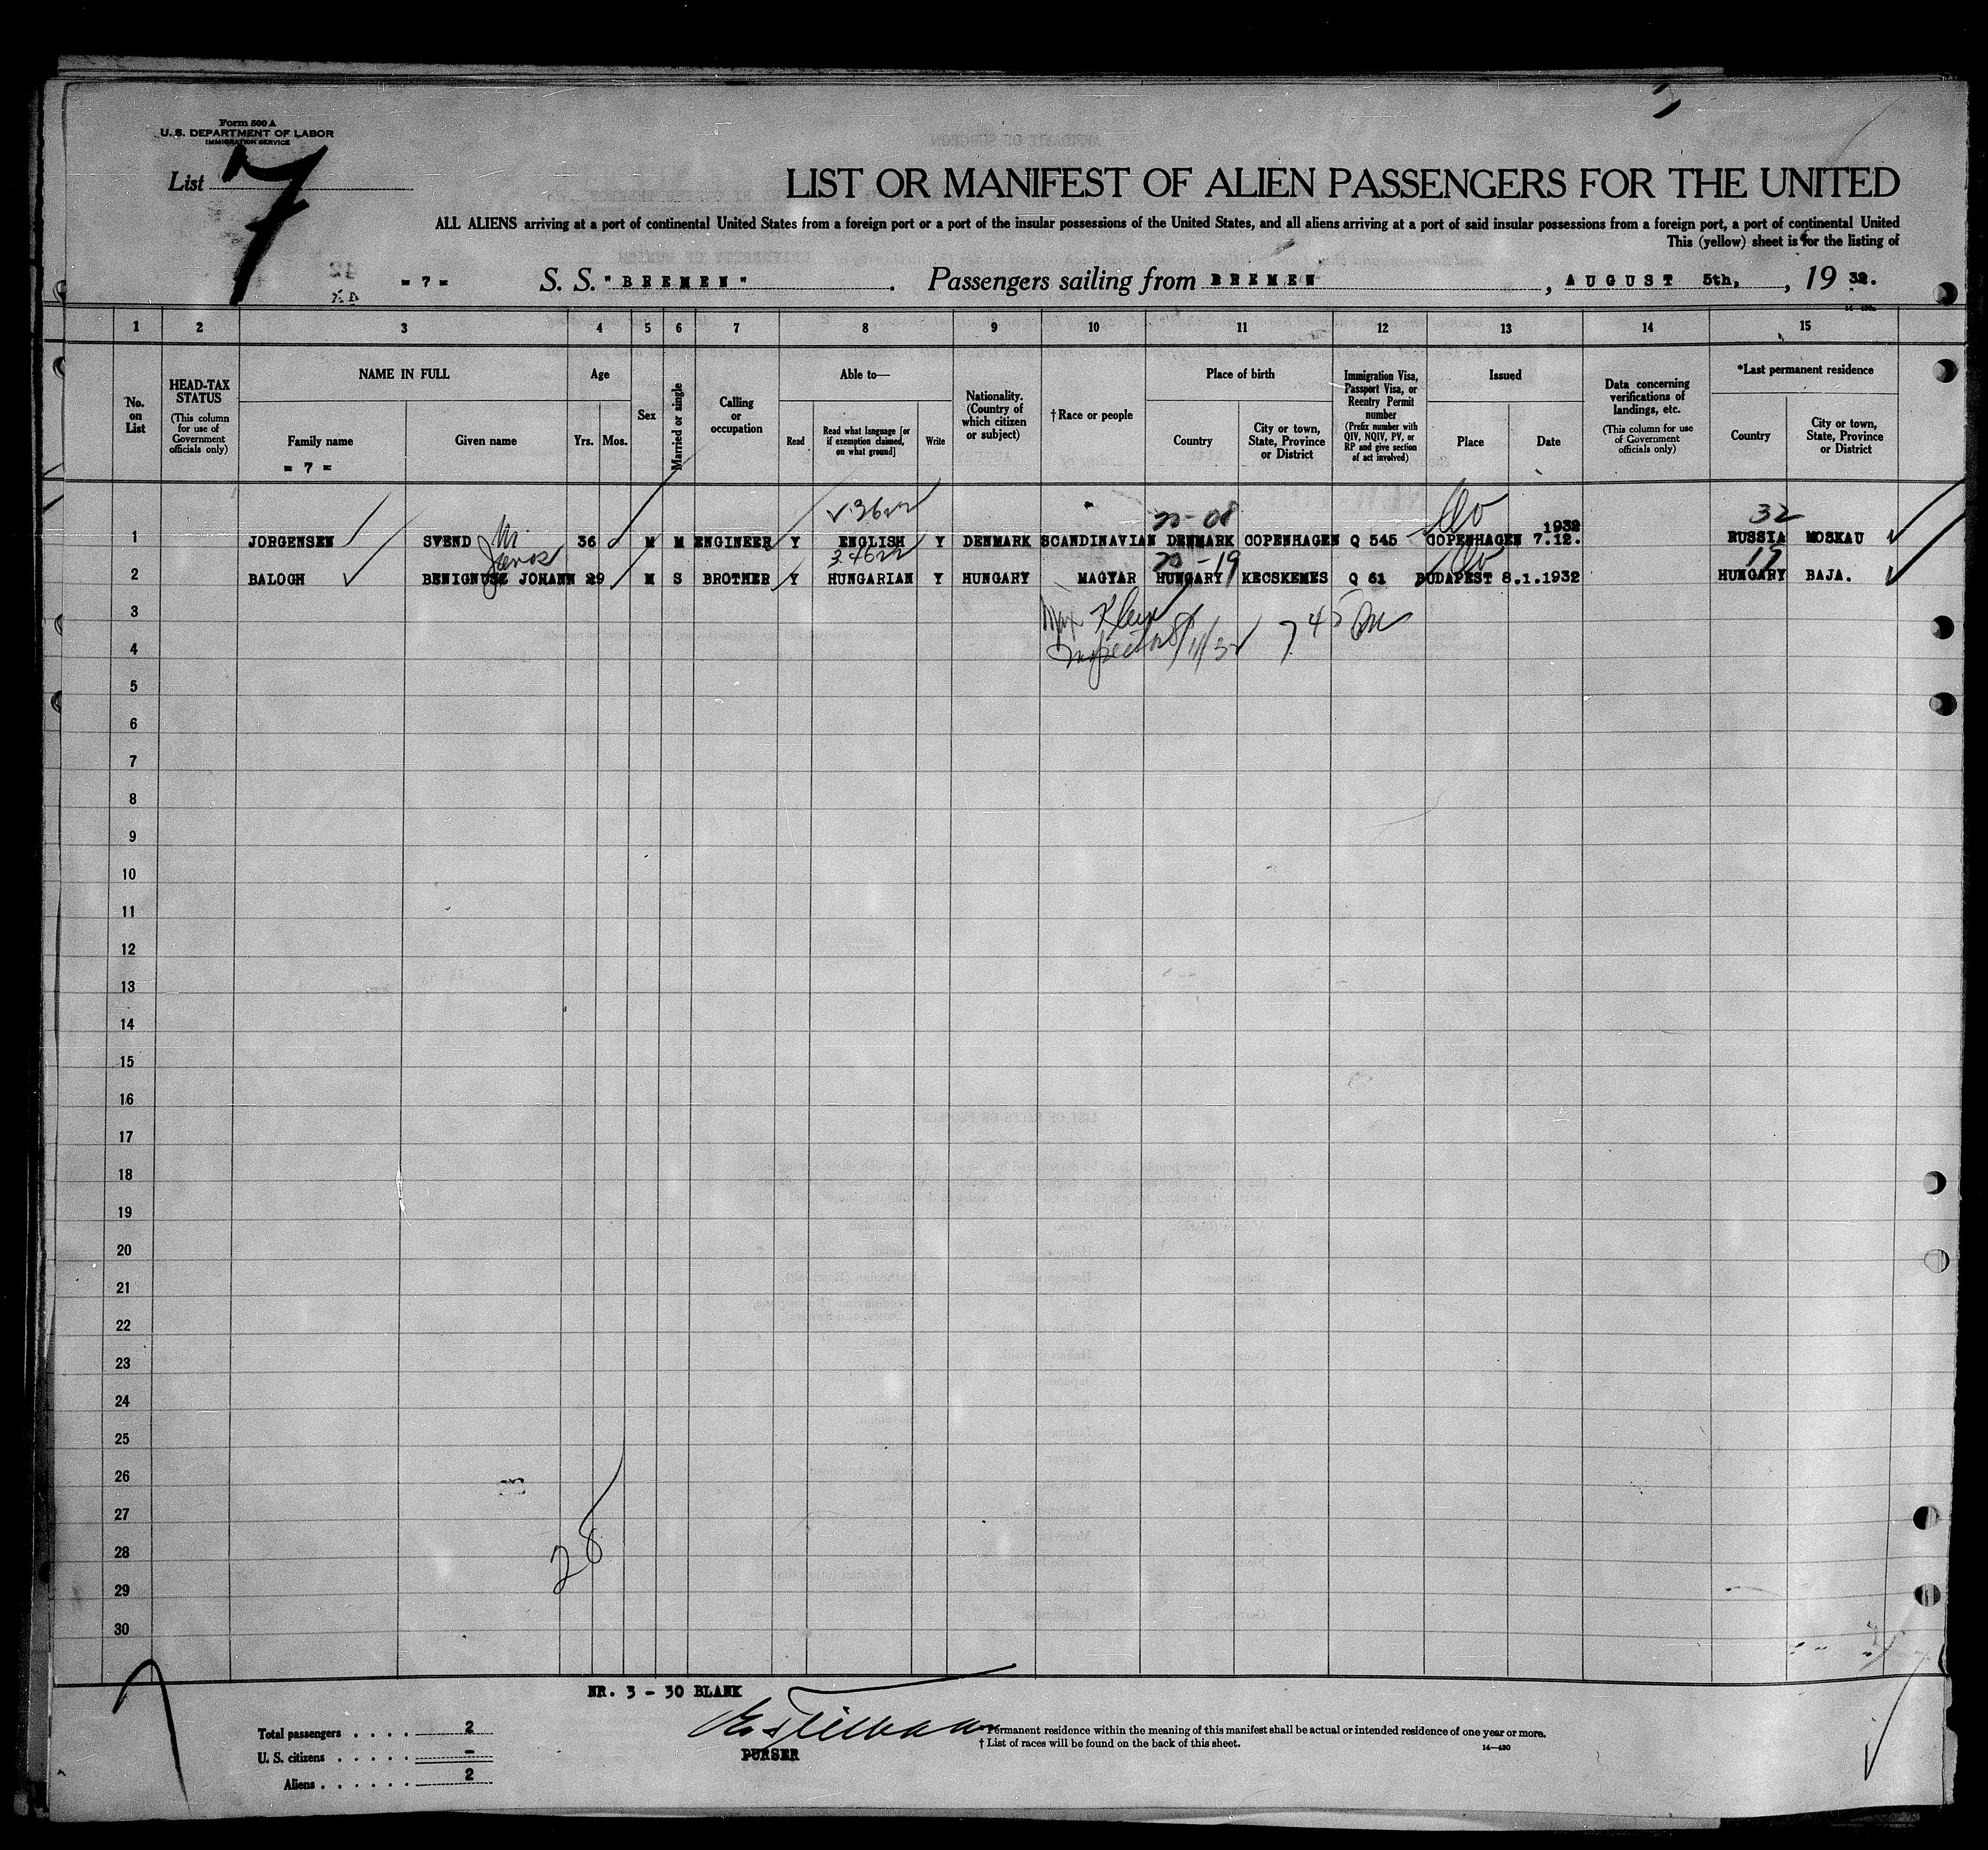 Form 500 A
U. S. DEPARTMENT OF LABOR
IMMIGRATION SERVICE
List 7
LIST OR MANIFEST OF ALIEN PASSENGERS FOR THE UNITED
ALL ALIENS arriving at a port of continental United States from a foreign port or a port of the insular possessions of the United States, and all aliens arriving at a port of said insular possessions from a foreign port, a port of continental United
This (yellow) sheet is for the listing of
= 7 = S. S. "BREMEN". Passengers sailing from BREMEN, AUGUST 5th, , 19 32.
1 2 3 4 5 6 7 8 9 10 11 12 13 14 15
No. on List
HEAD-TAX STATUS
(This column for use of Government officials only)
NAME IN FULL
Family name
Given name
= 7 =
Age
Yrs. Mos.
Sex
Married or single
Calling or occupation
Able to—
Read
Read what language [or if exemption claimed, on what ground]
Write
Nationality. (Country of which citizen or subject)
† Race or people
Place of birth
Country
City or town, State, Province or District
Immigration Visa, Passport Visa, or Reentry Permit number
(Prefix number with QIV, NQIV, PV, or RP and give section of act involved)
Issued
Place
Date
Data concerning verifications of landings, etc.
(This column for use of Government officials only)
*Last permanent residence
Country
City or town, State, Province or District
32
1 JORGENSEN SVEND 36 M M ENGINEER Y ENGLISH Y DENMARK SCANDINAVIAN DENMARK COPENHAGEN Q 545 COPENHAGEN 7.12. 1932 RUSSIA MOSKAU
Janos
19
2 BALOGH BENIGNUSZ JOHANN 29 M S BROTHER Y HUNGARIAN Y HUNGARY MAGYAR HUNGARY KECSKEMES Q 61 BUDAPEST 8.1.1932 HUNGARY BAJA.
3
Max Klein
4
Inspector 8/11/32 7 45
5
6
7
8
9
10
11
12
13
14
15
16
17
18
19
20
21
22
23
24
25
26
27
28
28
29
30
NR. 3 - 30 BLANK
Total passengers . . . . 2
U. S. citizens . . . . . -
Aliens . . . . . . 2
PURSER
*Permanent residence within the meaning of this manifest shall be actual or intended residence of one year or more.
† List of races will be found on the back of this sheet.
14—430